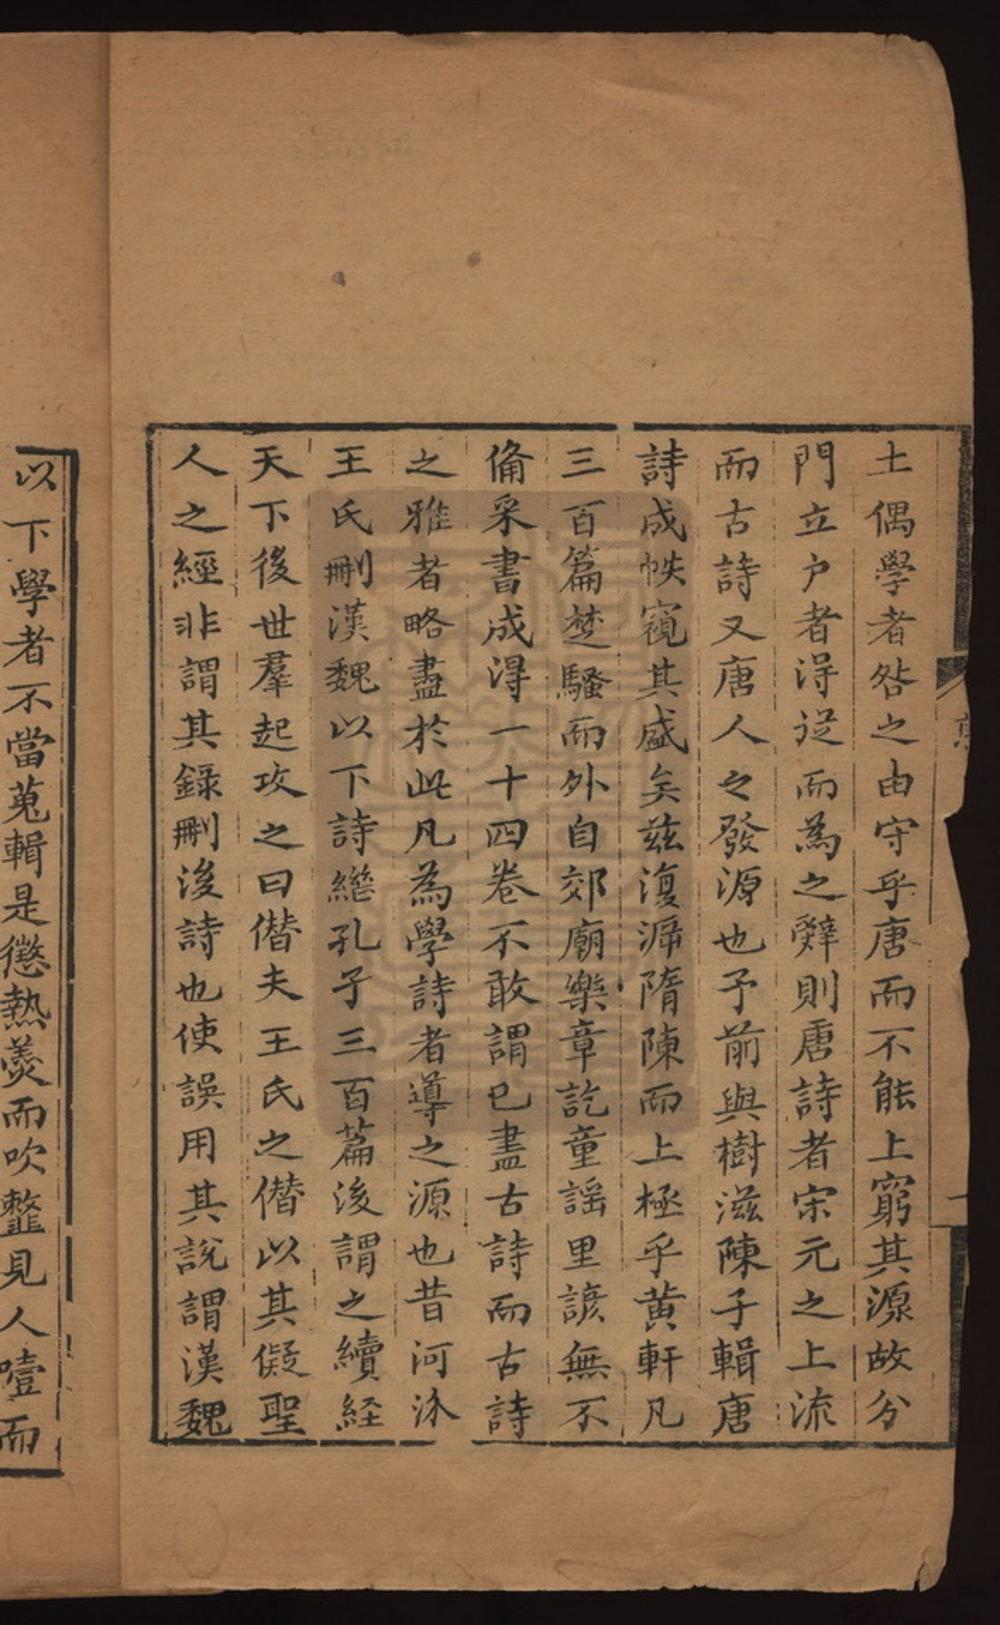 土偶學者咎之由守乎唐而不能上窮其源故分
門立户者得從而為之辭則唐詩者宋元之上流
而古詩又唐人之發源也予前與樹滋陳子輯唐
詩成帙窺其盛矣兹復遡隋陳而上極乎黄軒凡
三百篇楚騷而外自郊廟樂章訖童謡里諺無不
俻采書成得一十四卷不敢謂已盡古詩而古詩
之雅者略盡於此凡為學詩者導之源也昔河汾
王氏刪漢魏以下詩繼孔子三百篇後謂之續経
天下後世羣起攻之曰僣夫王氏之僣以其儗聖
人之經非謂其録刪後詩也使誤用其說謂漢魏
以下學者不當蒐輯是懲熱羹而吹虀見人噎而